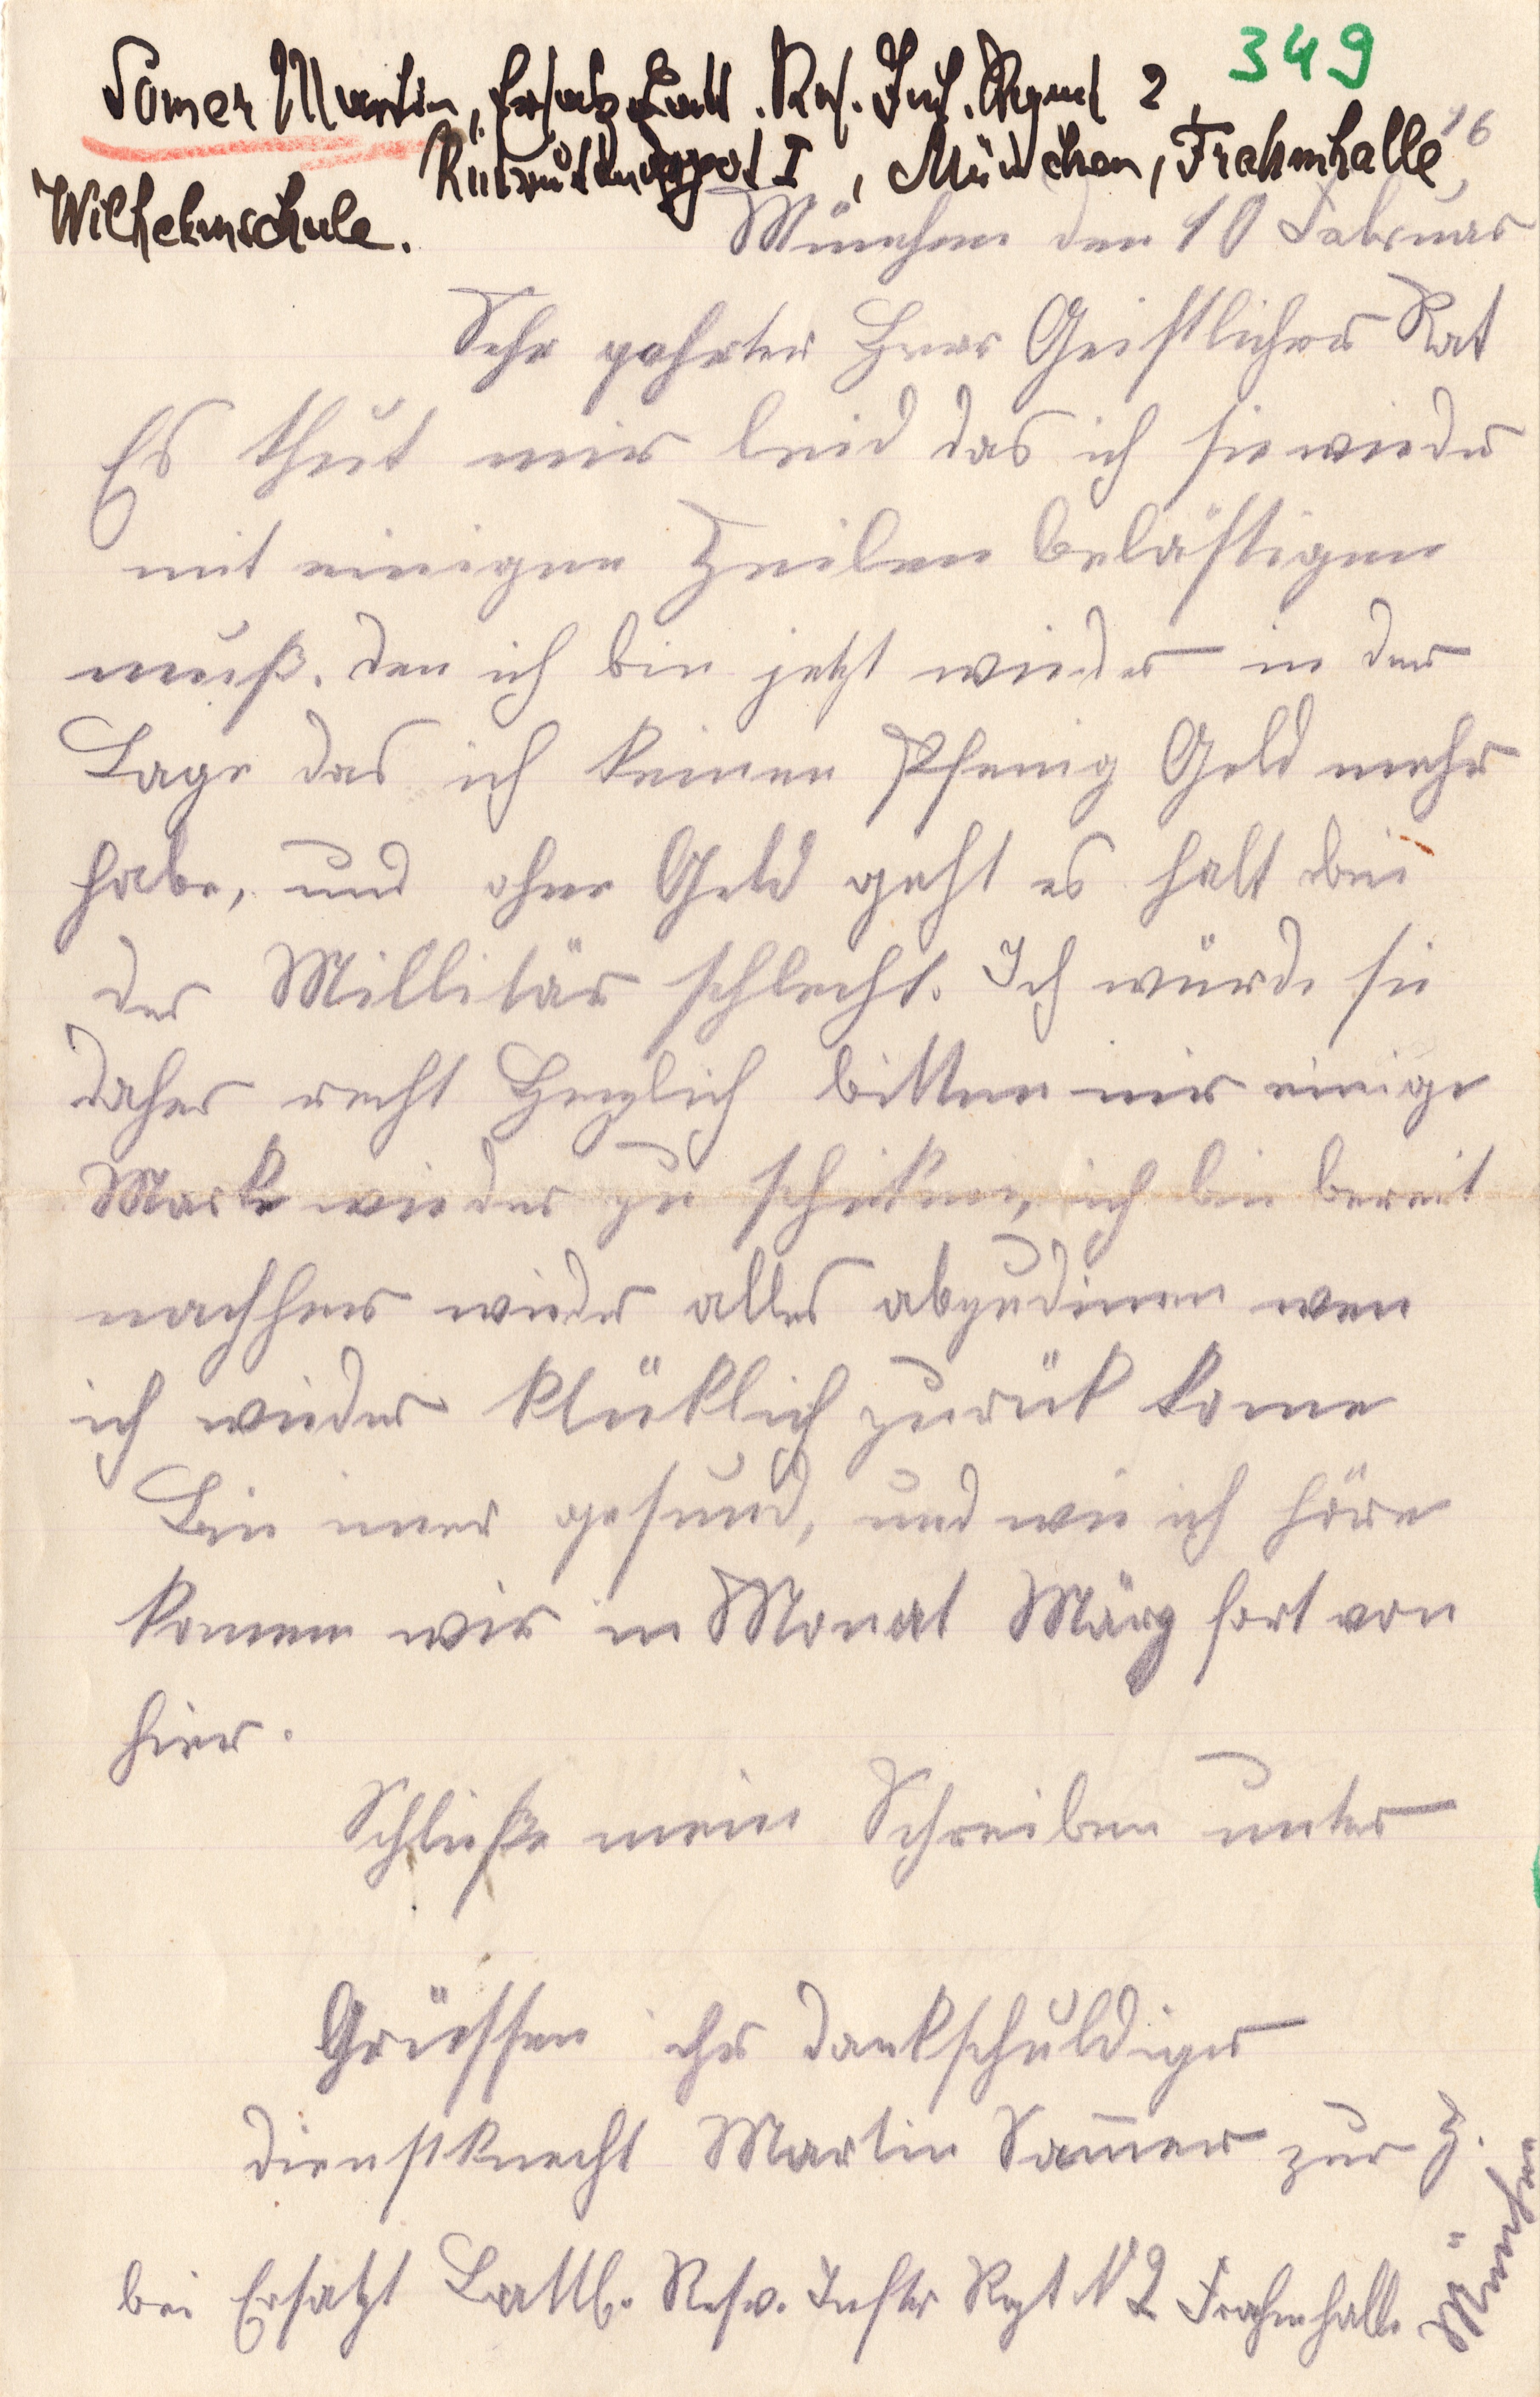 349
Somer Martin, Ersatz Batl. Res. Inf. Regmt 2,
Rückmeldedepot I, München, Frahmhalle,
Wilhelmschule.
16
München den 10 Februar
Sehr gehrter Herr Geistlicher Rat
Es thut mir leid das ich sie wieder
mit einigen Zeilen belästigen
muß. den ich bin jetzt wieder in der
Lage das ich keinen Pfenig Geld mehr
habe, und ohne Geld geht es halt bei
der Millitär schlecht. Ich würde sie
daher recht Herzlich bitten mir einige
Mark wieder zu schiken, ich bin bereit
nachher wieder alles abzudinen wen
ich wieder klüklich zurük kome
Bin imer gesund, und wie ich höre
komen wir in Monat März fort von
hier.
Schließe mein Schreiben unter
Grüssen ihr dankschuldiger
dienstknecht Martin Som̅er zur Z.
bei Ersatzt Battl. Resv. Inftr Rgt N 2 Frahmhalle
München